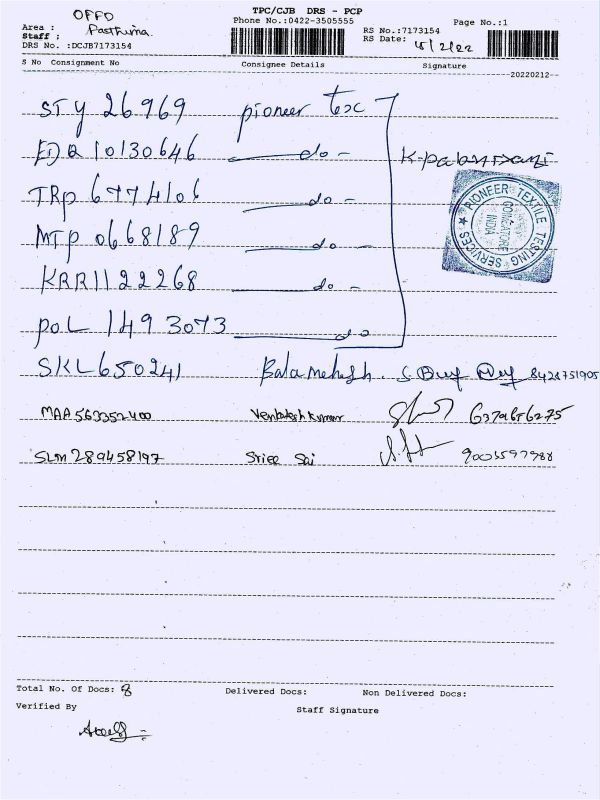 TPC/CJB DRS - PCP
OPPO
Phone No.:0422-3505555
Page No.:1
Area :
RS No.:7173154
Staff :
RS Date: 15/2/22
DRS No. :DCJB7173154
S No Consignment No Consignee Details Signature
20220212
STY 26969 pioneer Tex
EDQ 10130646 do -
TRP 6774106 do -
MTP 0668189 do -
KRR1122268 do -
POL 1493073 do
PIONEER TEXTILE TESTING SERVICES
COIMBATORE
INDIA
SKL650241 Balamahesh. 8428751905
MAA 563352400 Venkatesh Kumar
SLM 289458197 Sree Sai
Total No. Of Docs: 8 Delivered Docs: Non Delivered Docs:
Verified By Staff Signature